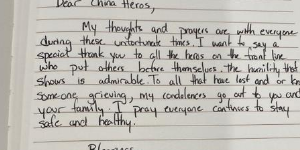 Dear China Heros,
My thoughts and prayers are with everyone
during these unfortunate times. I want to say a
special thank you to all the heros on the front line
who put others before themselves. The humility that
shows is admirable To all that have lost and or be
someone grieving, my condolences go out to you and
your family. I pray everyone continues to stay
safe and healthy.